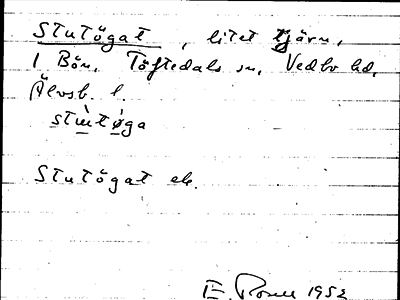 Stutögat, litet tjärn,
i Bön, Töftedals sn, Vedbo hd,
Älvsb. l.
Stutögat ek.
E. 1952